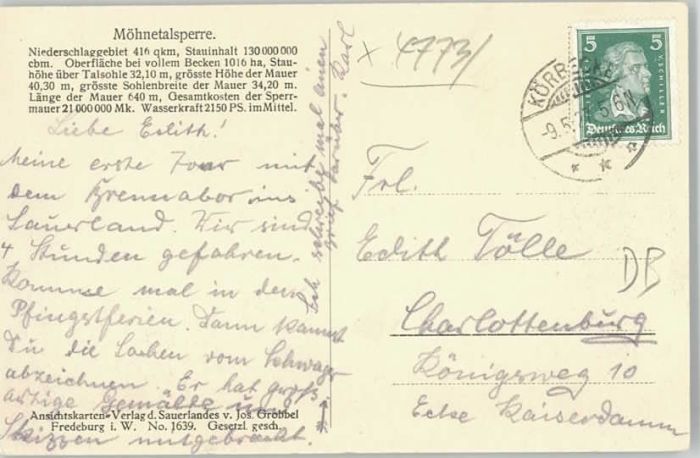 Möhnetalsperre.
Niederschlaggebiet 416 qkm, Stauinhalt 130 000 000
cbm. Oberfläche bei vollem Becken 1016 ha, Stau-
höhe über Talsohle 32,10 m, grösste Höhe der Mauer
40,30 m, grösste Sohlenbreite der Mauer 34,20 m.
Länge der Mauer 640 m, Gesamtkosten der Sperr-
mauer 21 000 000 Mk. Wasserkraft 2150 PS. im Mittel.
Liebe Edith!
Meine erste Tour mit
dem Brennabor ins
Sauerland. Wir sind
4 Stunden gefahren.
Komme mal in den
Pfingstferien. Dann kannst
Du die Sachen vom Schwager
abzeichnen. Er hat groß
artige Gemälde und
Skizzen mitgebracht.
Ansichtskarten-Verlag d. Sauerlandes v. Jos. Grobbel
Fredeburg i. W. No. 1639. Gesetzl. gesch.
Ich schreibe mal einen
darüber. Karl
x 4773/
KÖRBECKE
5 5
Deutsches Reich
Frl.
Edith Tölle
Charlottenburg
Königsweg 10
Ecke Kaiserdamm
DB